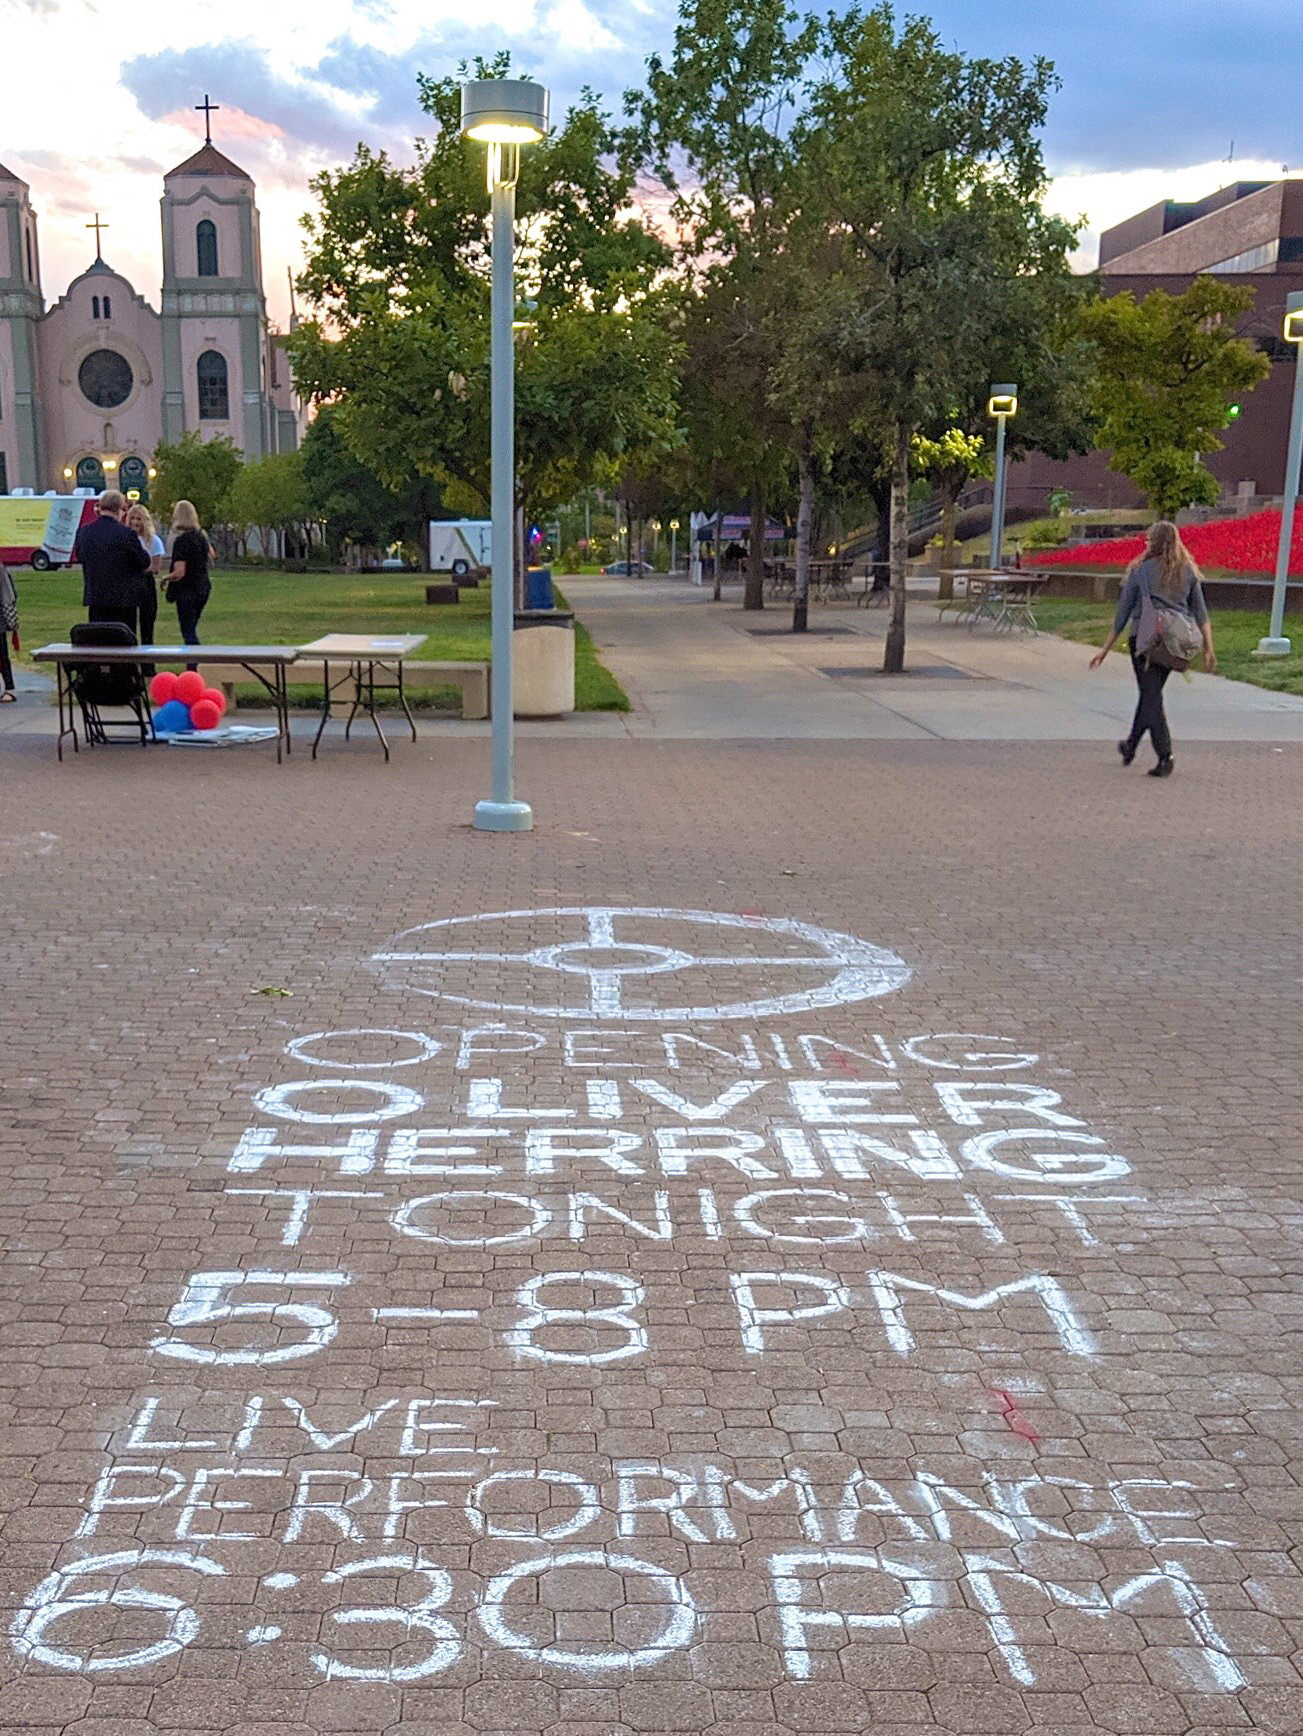 OPENING
OLIVER
HERRING
TONIGHT
5-8 PM
LIVE
PERFORMANCE
6:30 PM